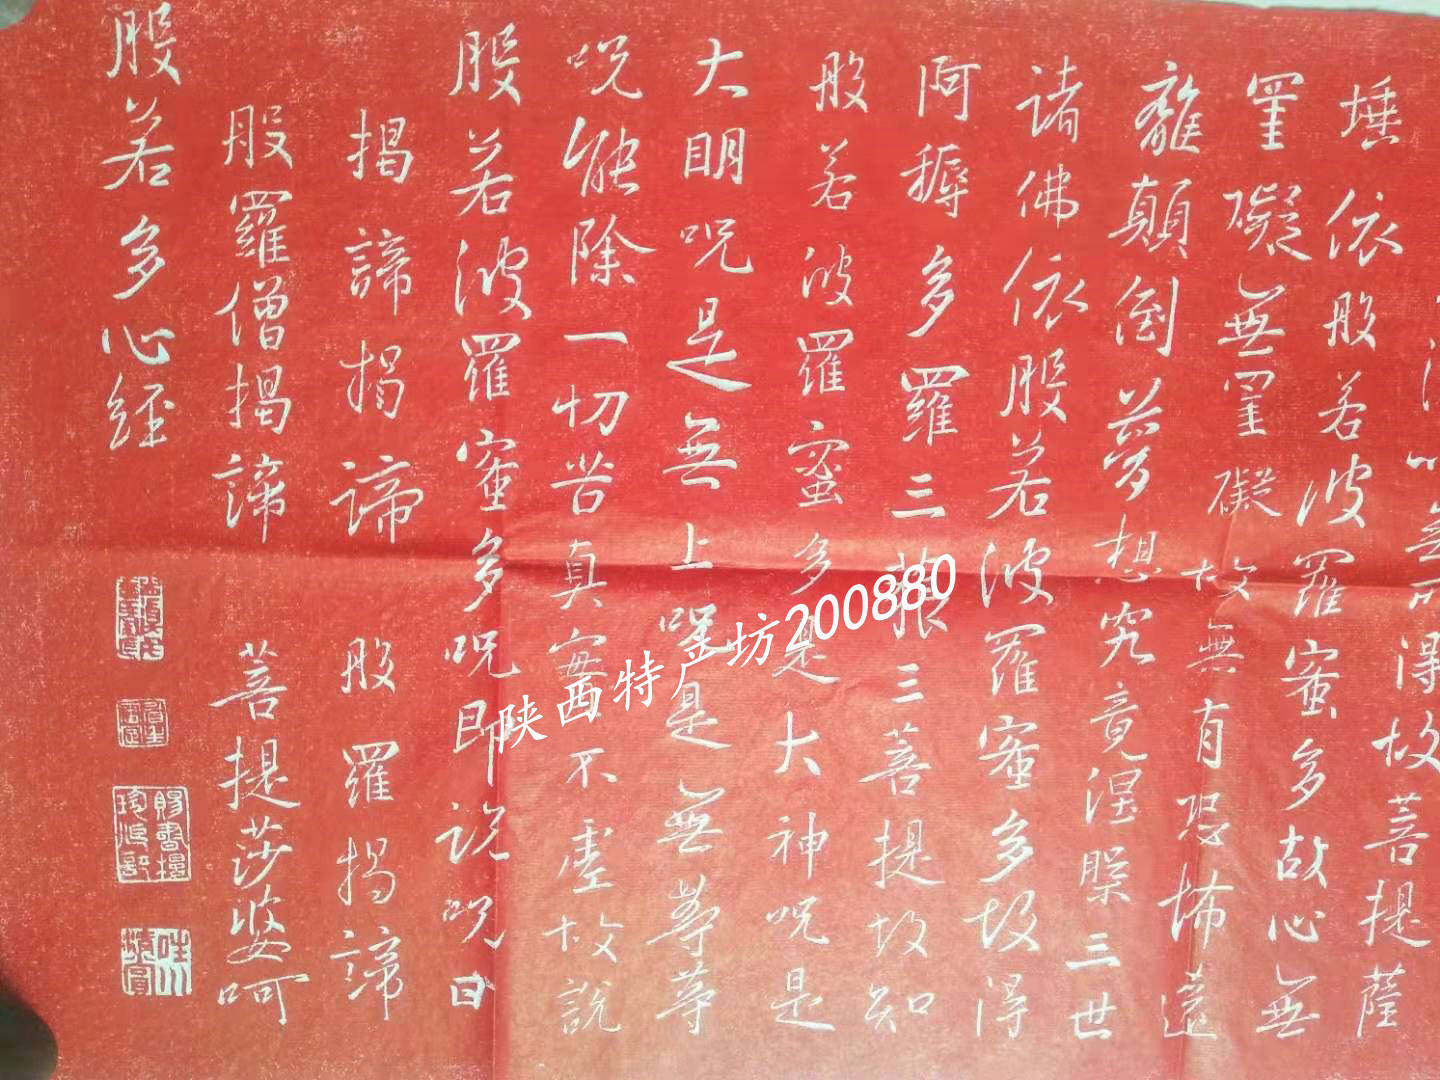 無所得故菩提薩
埵依般若波羅蜜多故心無
罣礙無罣礙故無有恐怖遠
離顛倒夢想究竟涅槃三世
諸佛依般若波羅蜜多故得
阿耨多羅三藐三菩提故知
般若波羅蜜多是大神咒是
大明咒是無上咒是無等等
咒能除一切苦真實不虛故說
般若波羅蜜多咒即說咒曰
揭諦揭諦 般羅揭諦
般羅僧揭諦 菩提莎婆呵
般若多心經
陕西特产坊200880